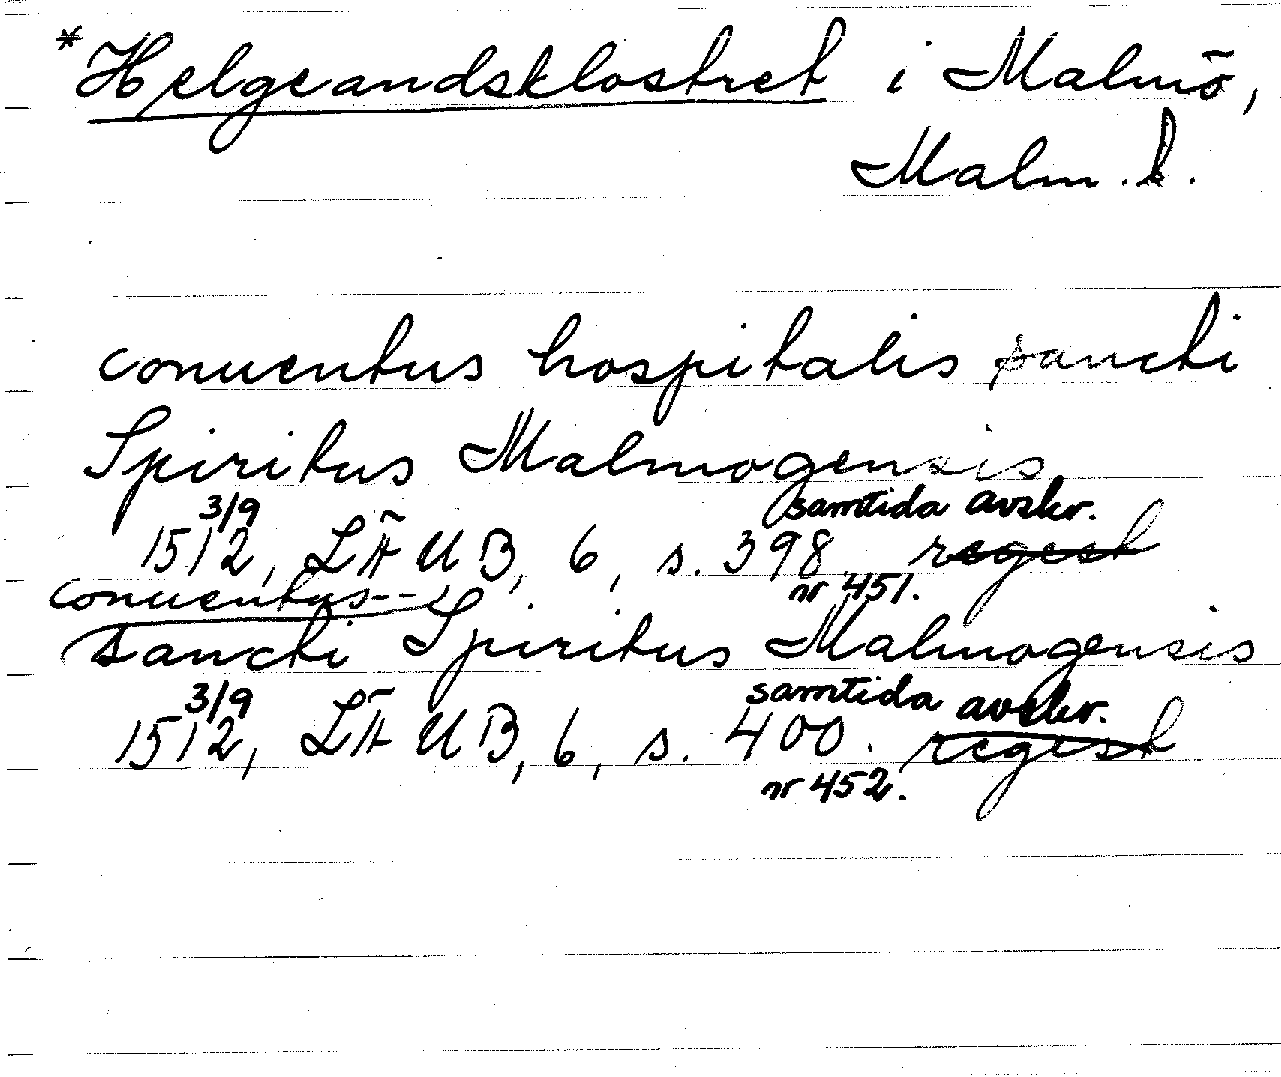 *Helgeandsklostret i Malmö,
Malm. k.
conuentus hospitalis sancti
Spiritus Malmogensis
3/9 samtida avskr.
1512, LÄUB, 6, s. 398. regest
nr 451.
conuentus---
sancti Spiritus Malmogensis
3/9 samtida avskr.
1512, LÄUB, 6, s. 400. regest
nr 452.